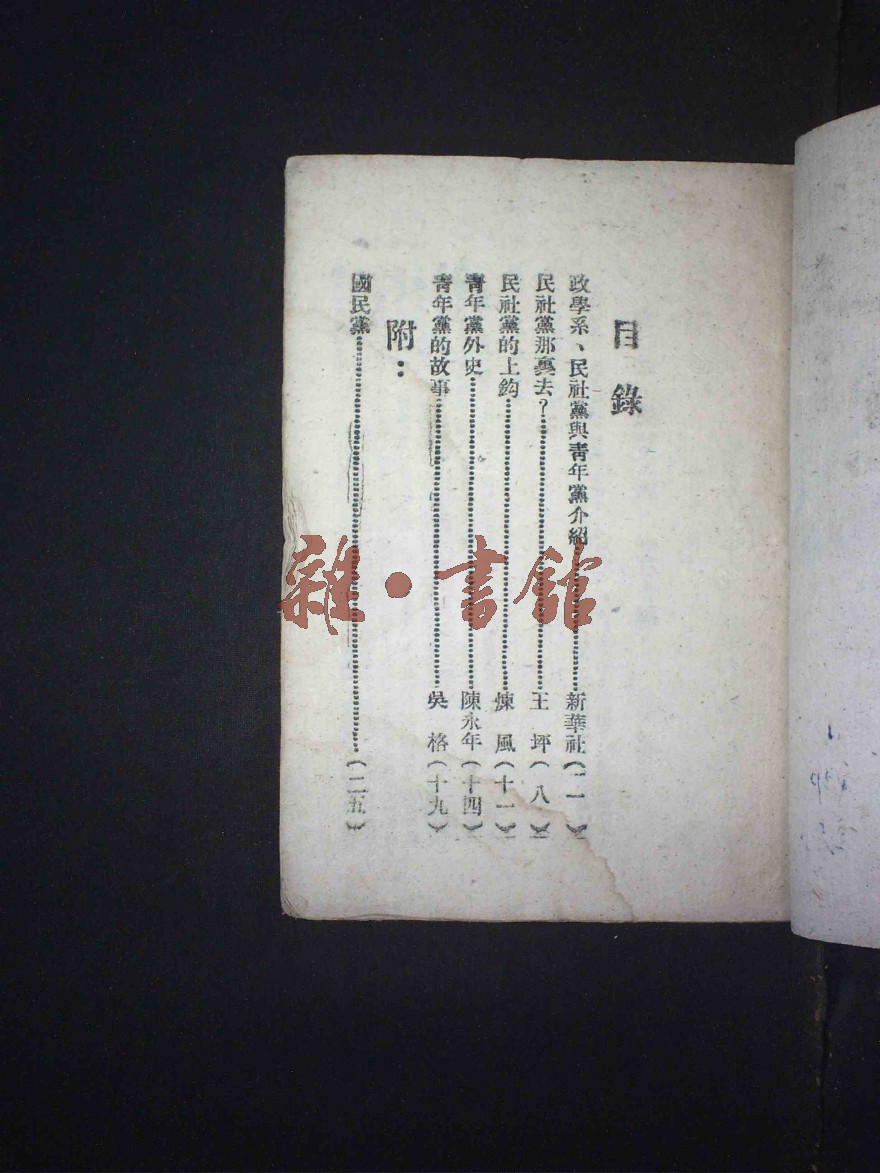 目錄
政學系、民社黨與青年黨介紹……新華社(一)
民社黨那裏去？……王坪(八)
民社黨的上鈎……煉風(十一)
青年黨外史……陳永年(十四)
青年黨的故事……吳格(十九)
附：
國民黨……(二五)
雜·書館